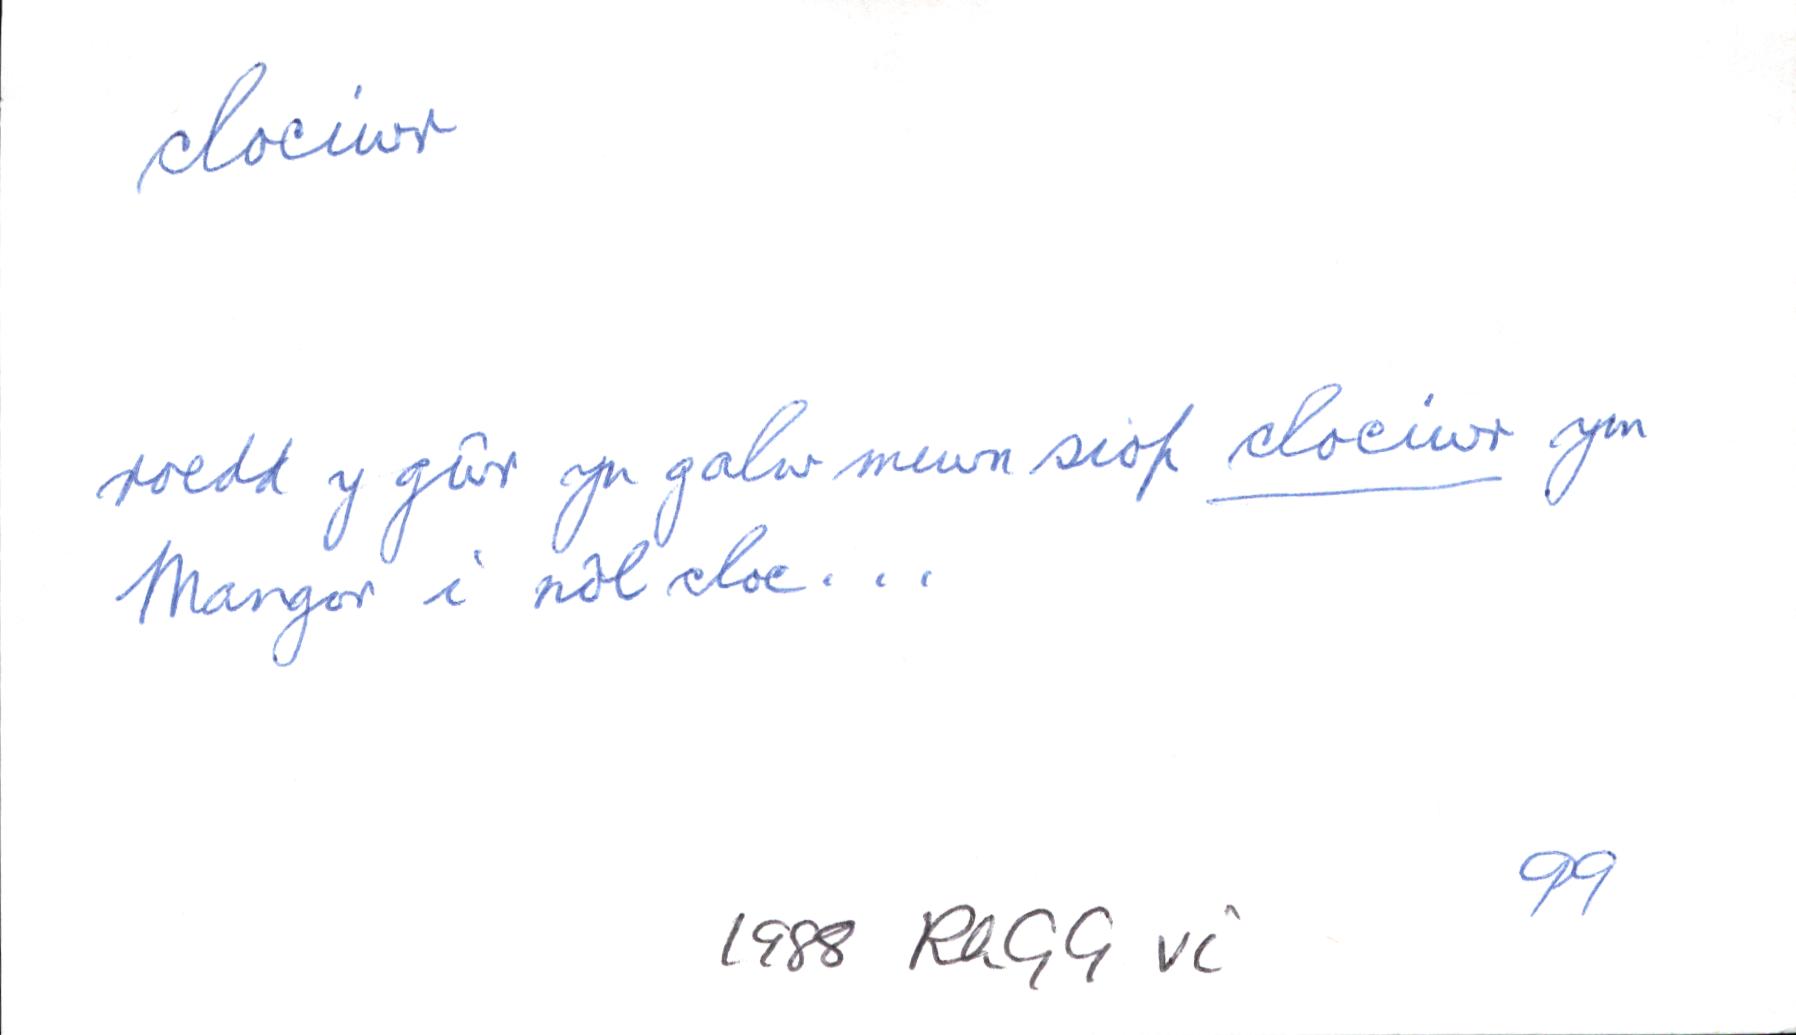 clociwr
roedd y gŵr yn galw mewn siop clociwr ym
Mangor i nôl cloc...
99
1988 RhGG vi